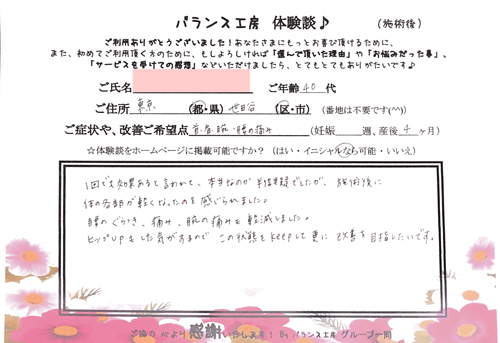 バランス工房 体験談♪ （施術後）
ご利用ありがとうございました！あなたさまにもっとお喜び頂けるために、
また、初めてご利用頂く方のために、もしよろしければ「選んで頂いた理由」や「お悩みだった事」、
「サービスを受けての感想」などいただけましたら、とてもとてもありがたいです♪
ご氏名 ご年齢 40 代
ご住所 東京 （都・県） 世田谷 （区・市） （番地は不要です(^^)）
ご症状や、改善ご希望点 首・背・腕・腰の痛み （妊娠 週、産後 4 ヶ月）
☆体験談をホームページに掲載可能ですか？（はい・イニシャルなら可能・いいえ）
1回でも効果あると言われて、本当なのか半信半疑でしたが、施術後に
体の各部が軽くなったのを感じられました。
腰のぐらつき、痛み、腕の痛みも軽減しました。
ヒップUPもした気がするので この状態をkeepして更に 改善を目指したいです。
ご協力 心より感謝いたします！ By バランス工房 グループ一同